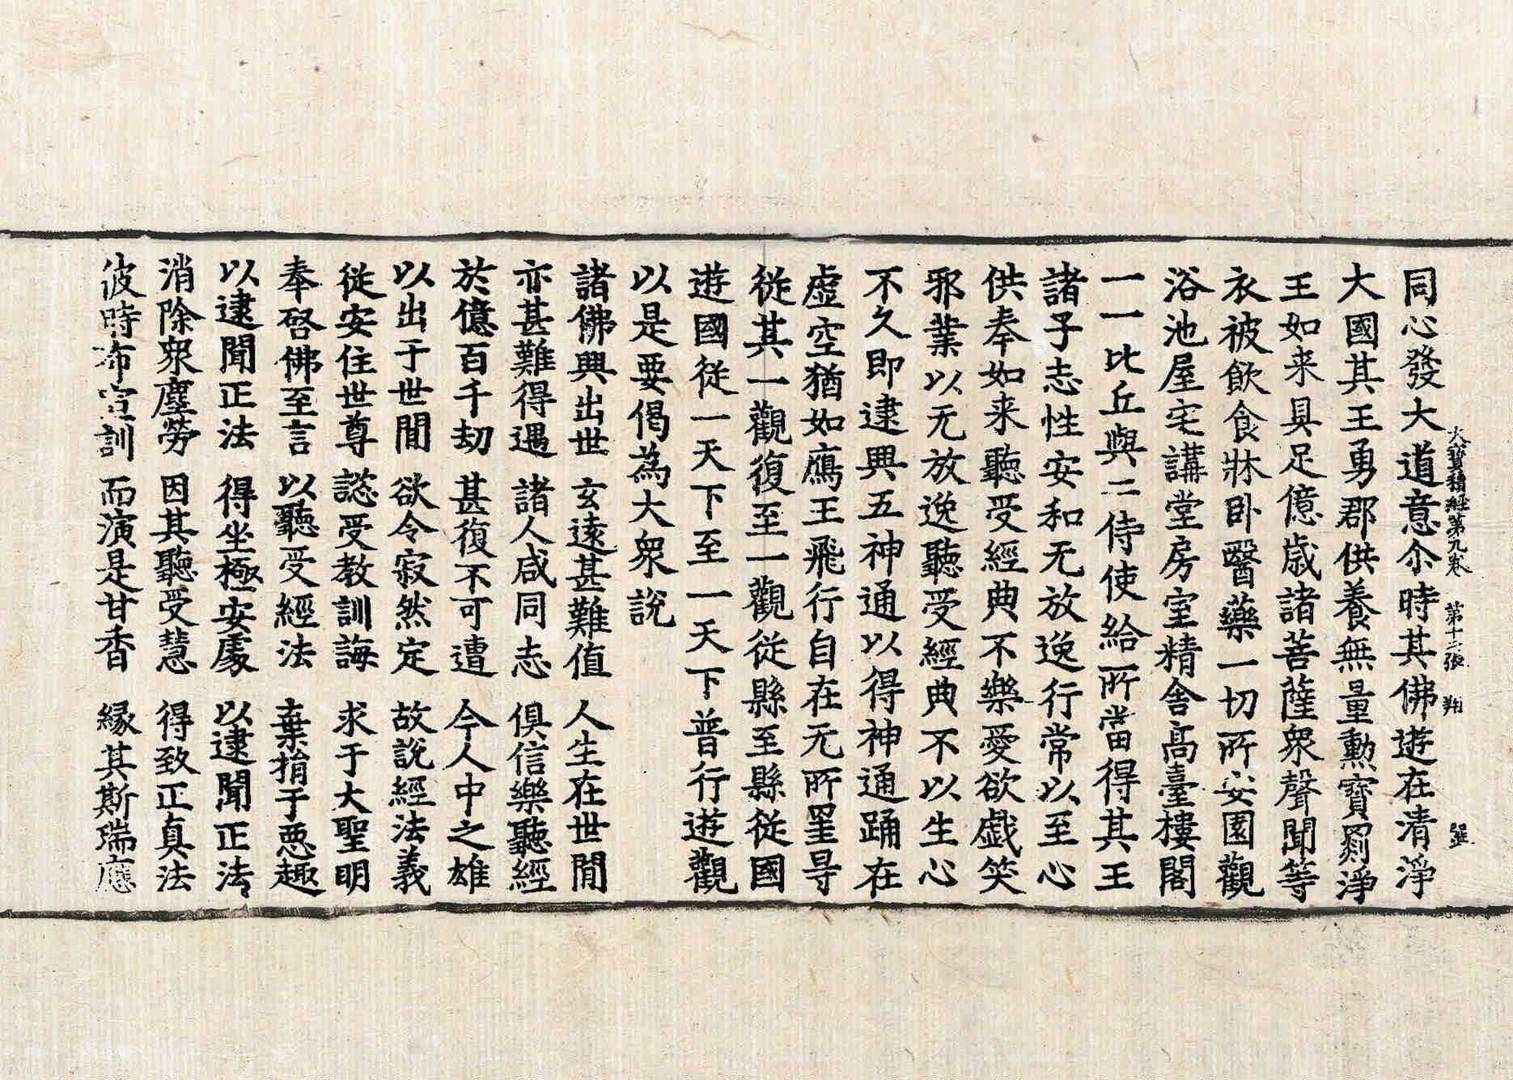 大寶積經第九卷　第十二張　翔
同心發大道意尒時其佛遊在清淨
大國其王勇郡供養無量勳寶㓻淨
王如来具足億歲諸菩薩衆聲聞等
衣被飲食牀卧醫藥一切所安園觀
浴池屋宅講堂房室精舍高臺樓閣
一一比丘與二侍使給所當得其王
諸子志性安和无放逸行常以至心
供奉如来聽受經典不樂愛欲戱笑
邪業以无放逸聽受經典不以生心
不久即逮興五神通以得神通踊在
虛空猶如鴈王飛行自在无所罣㝵
從其一觀復至一觀從縣至縣從國
遊國從一天下至一天下普行遊觀
以是要偈為大衆說
諸佛興出世　玄遠甚難值　人生在世閒
亦甚難得遇　諸人咸同志　俱信樂聽經
於億百千劫　甚復不可遭　今人中之雄
以出于世閒　欲令寂然定　故說經法義
從安住世尊　諮受教訓誨　求于大聖明
奉啓佛至言　以聽受經法　棄捐于惡趣
以逮聞正法　得坐極安處　以逮聞正法
消除衆塵勞　因其聽受慧　得致正真法
彼時布宣訓　而演是甘香　緣其斯瑞應